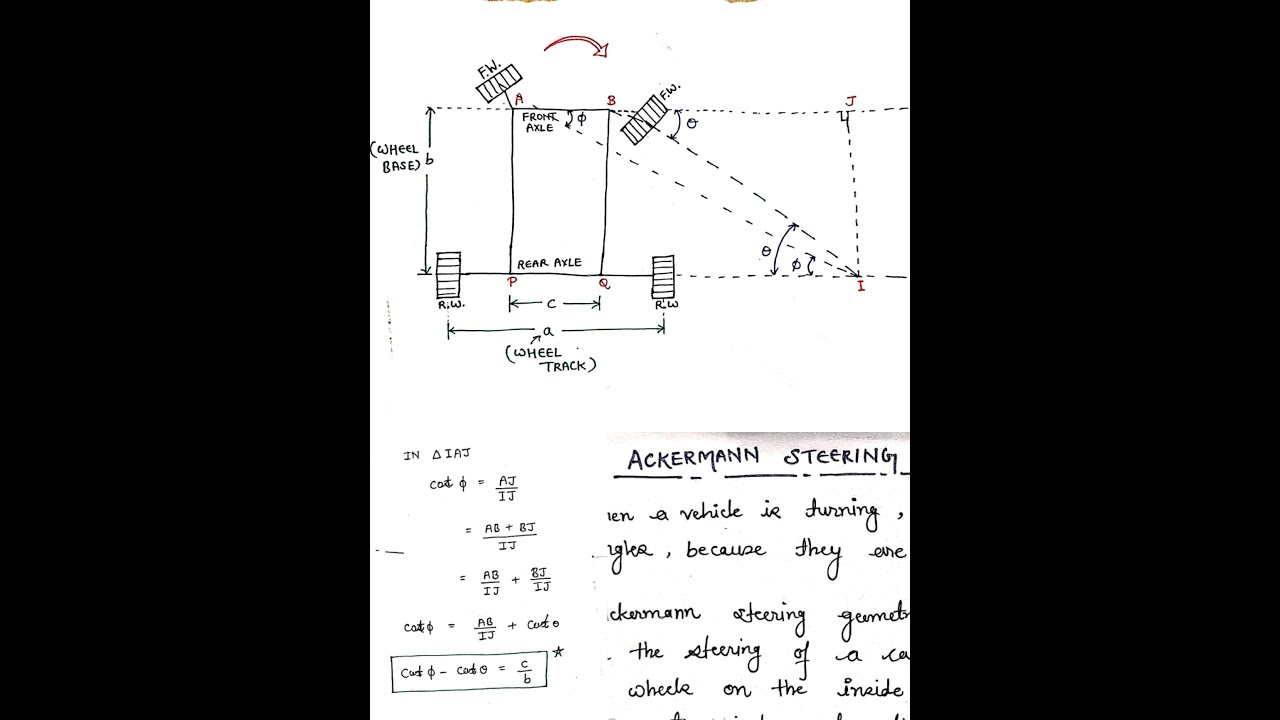 F.W.
A
B
F.W.
J
FRONT
AXLE
φ
θ
(WHEEL
BASE) b
θ
φ
REAR AXLE
P
Q
I
R.W.
c
R.W
a
(WHEEL
TRACK)
IN △IAJ
cot φ = AJ/IJ
= AB + BJ/IJ
= AB/IJ + BJ/IJ
cot φ = AB/IJ + cot θ
cot φ - cot θ = c/b *
ACKERMANN STEERING
en a vehicle is turning,
gles, because they are
ckermann steering geomet
. the steering of a ca
wheels on the inside